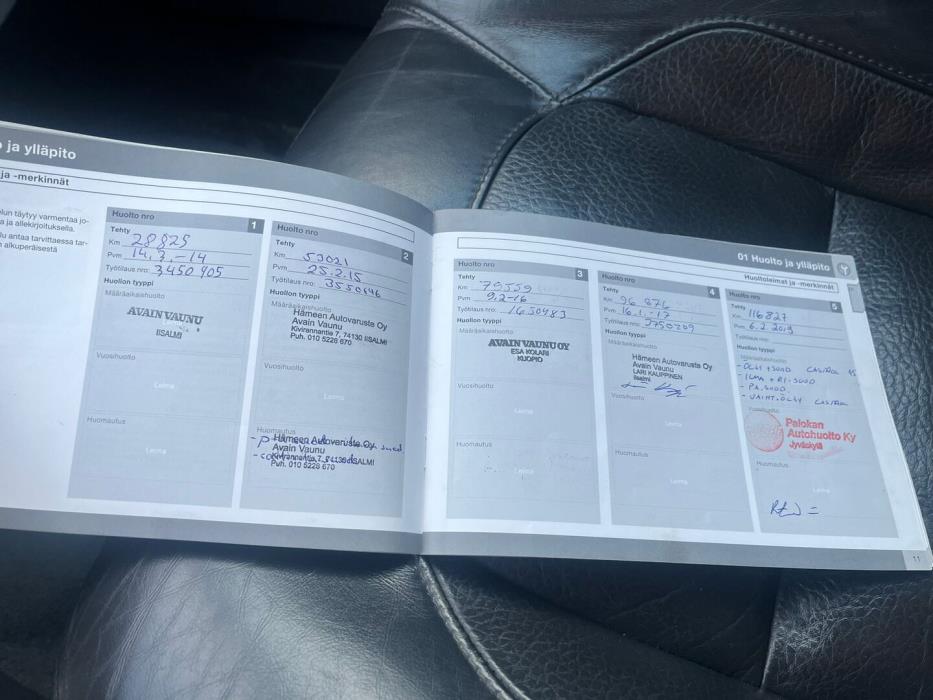 ja ylläpito
ja -merkinnät
täytyy varmentaa jo-
a ja allekirjoituksella.
lu antaa tarvittaessa tar-
alkuperäisestä
Huolto nro 1
Tehty
Km 28825
Pvm 14.3.-14
Työtilaus nro: 3450905
Huollon tyyppi
Määräaikaishuolto
AVAIN VAUNU
IISALMI
Vuosihuolto
Leima
Huomautus
Leima
Huolto nro 2
Tehty
Km 53021
Pvm 25.2.15
Työtilaus nro: 3550646
Huollon tyyppi
Hämeen Autovaruste Oy
Avain Vaunu
Kivirannantie 7, 74130 IISALMI
Puh. 010 5228 670
Vuosihuolto
Leima
Huomautus
Hämeen Autovaruste Oy
Avain Vaunu
Kivirannantie 7, 74130 IISALMI
Puh. 010 5228 670
01 Huolto ja ylläpito
Huoltoleimat ja -merkinnät
Huolto nro 3
Tehty
Km 79559
Pvm 9.2-16
Työtilaus nro: 1650483
Huollon tyyppi
Määräaikaishuolto
AVAIN VAUNU OY
ESA KOLARI
KUOPIO
Vuosihuolto
Leima
Huomautus
Leima
Huolto nro 4
Tehty
Km 96876
Pvm 16.1.-17
Työtilaus nro: 2750209
Huollon tyyppi
Määräaikaishuolto
Hämeen Autovaruste Oy
Avain Vaunu
LARI KAUPPINEN
Iisalmi
Vuosihuolto
Leima
Huomautus
Leima
Huolto nro 5
Tehty
Km 116827
Pvm 6.2.2019
Työtilaus nro:
Huollon tyyppi
Määräaikaishuolto
- ÖLJY + SUOD CASTROL
- ILMA + RI.SUOD
- PA.SUOD
- VAIHT.ÖLJY CASTROL
Vuosihuolto
Palokan
Autohuolto Ky
Jyväskylä
Huomautus
Leima
11